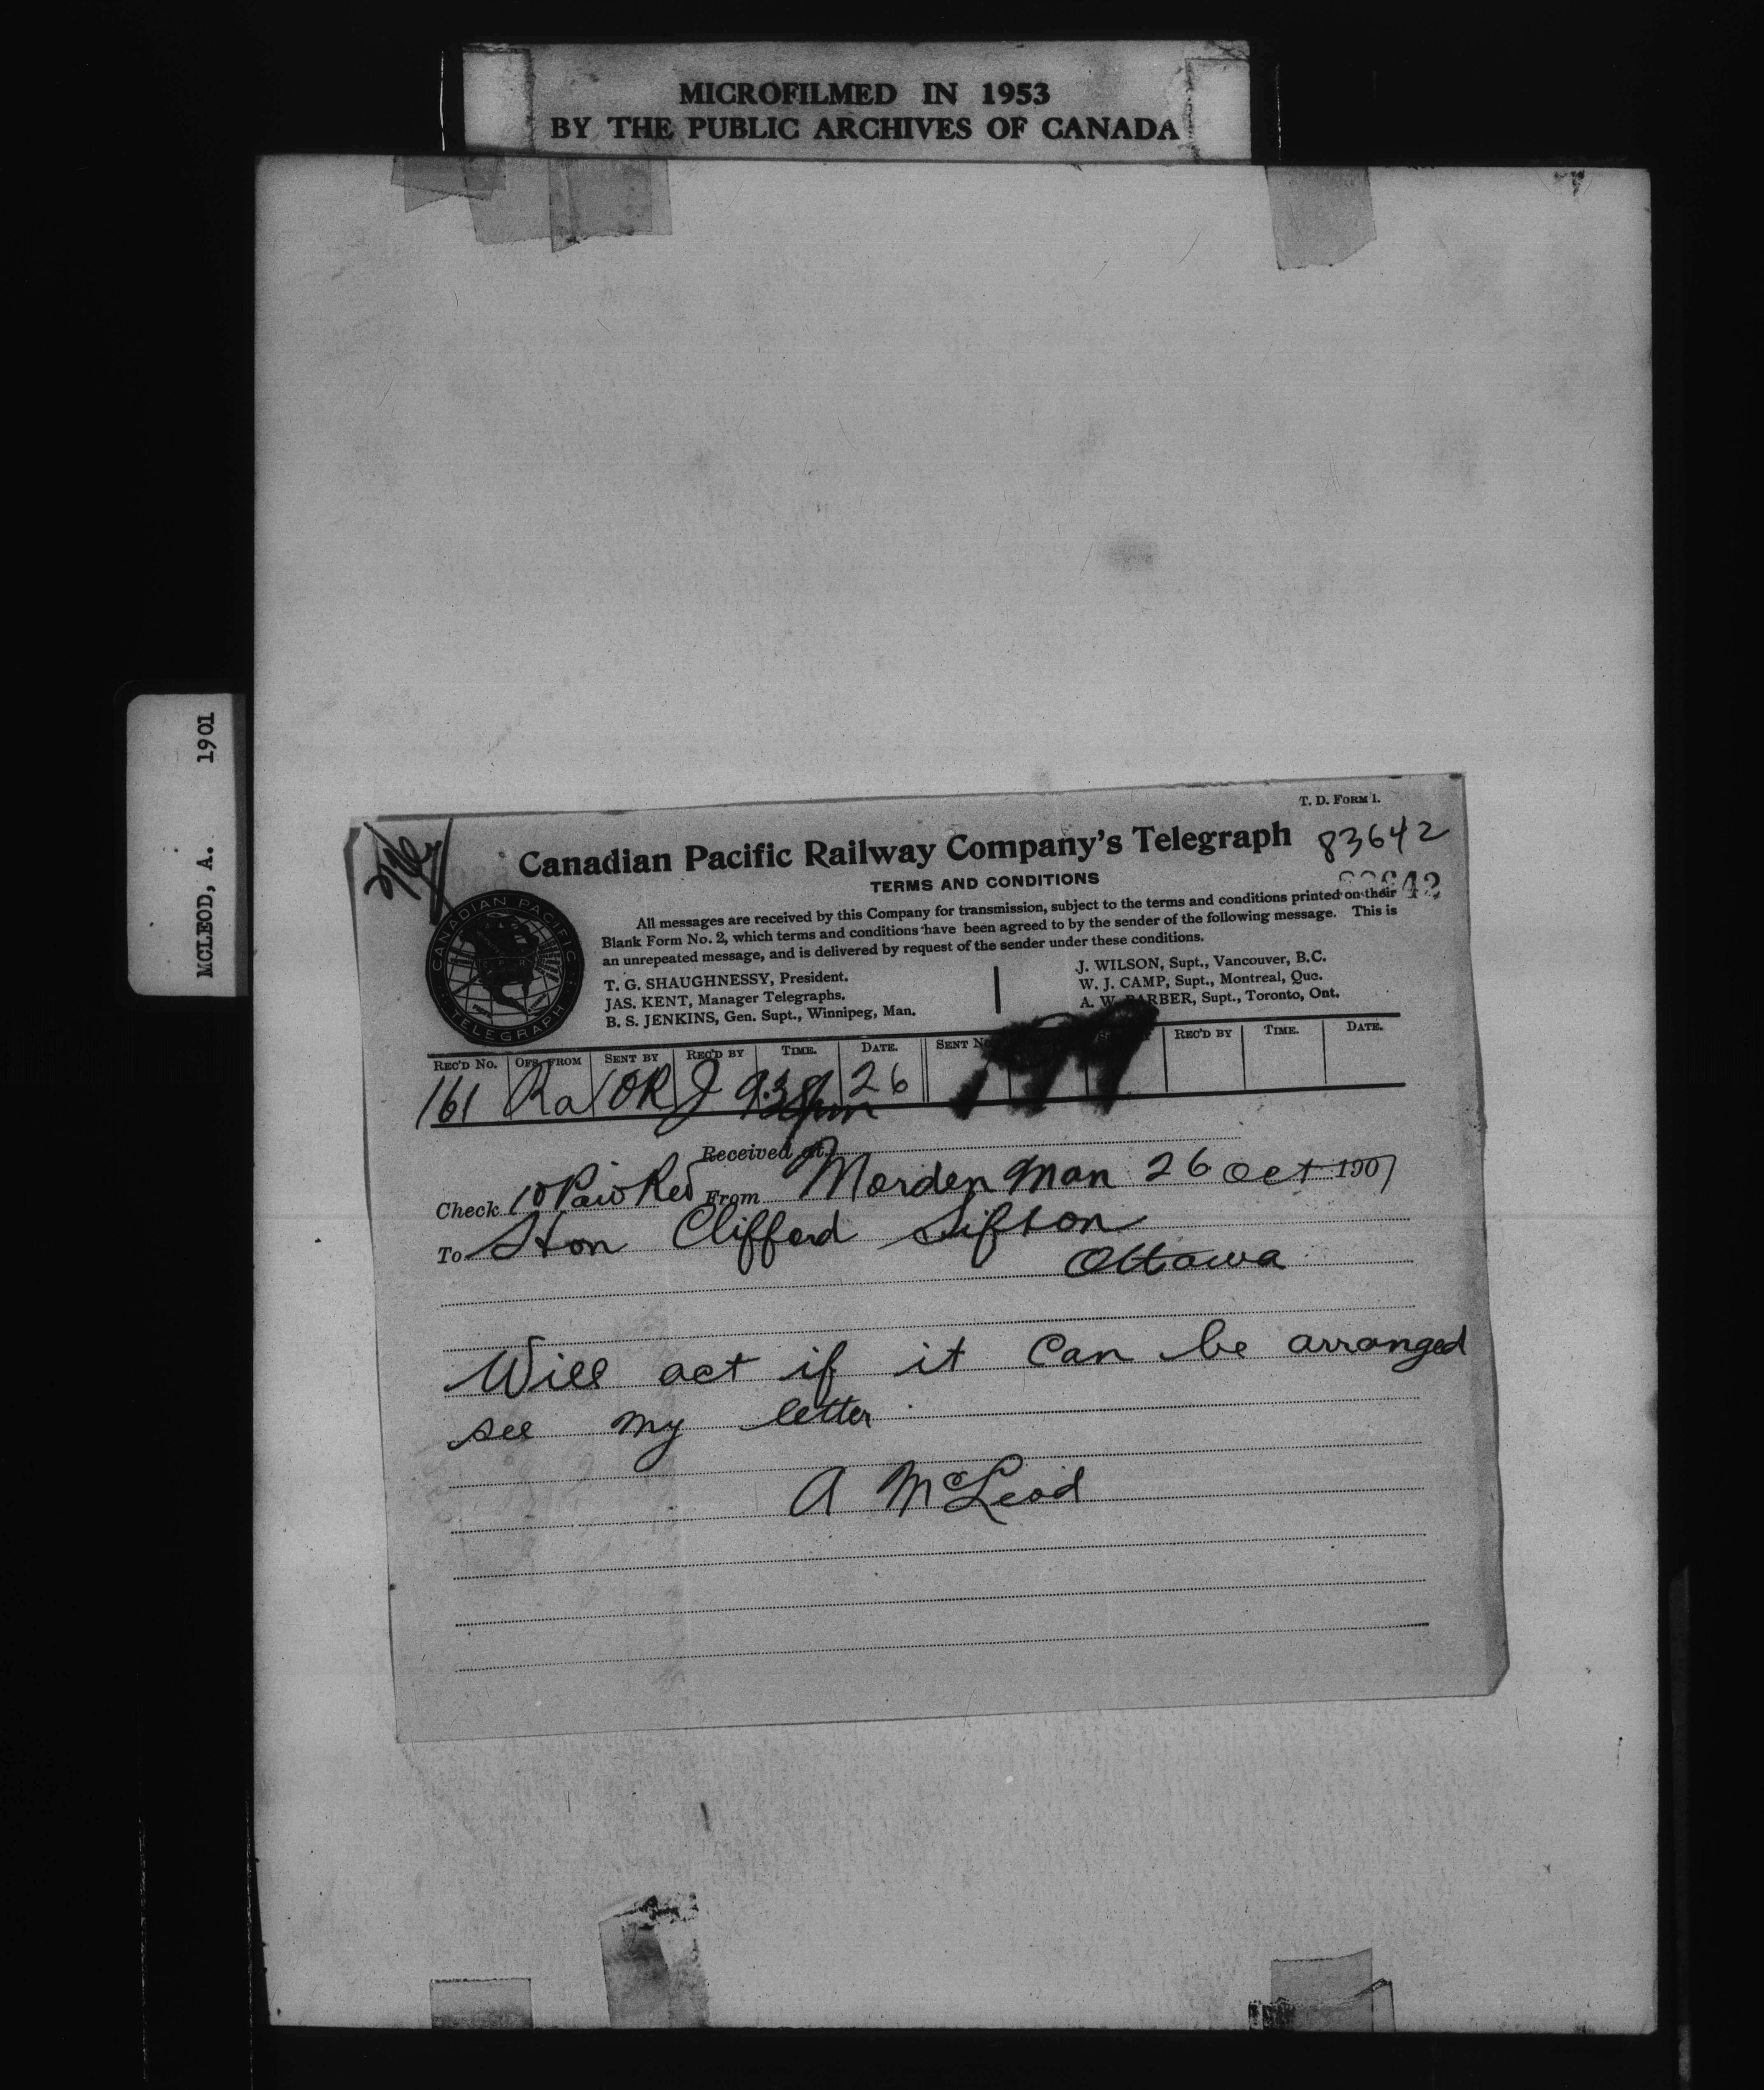 MICROFILMED IN 1953
BY THE PUBLIC ARCHIVES OF CANADA
MCLEOD, A. 1901
T. D. FORM 1.
Canadian Pacific Railway Company's Telegraph
83642
TERMS AND CONDITIONS
All messages are received by this Company for transmission, subject to the terms and conditions printed on their
Blank Form No. 2, which terms and conditions have been agreed to by the sender of the following message. This is
an unrepeated message, and is delivered by request of the sender under these conditions.
CANADIAN PACIFIC TELEGRAPH
T. G. SHAUGHNESSY, President.
JAS. KENT, Manager Telegraphs.
B. S. JENKINS, Gen. Supt., Winnipeg, Man.
J. WILSON, Supt., Vancouver, B.C.
W. J. CAMP, Supt., Montreal, Que.
A. W. BARBER, Supt., Toronto, Ont.
REC'D No. OFS. FROM SENT BY REC'D BY TIME. DATE. SENT No. REC'D BY TIME. DATE.
161 Ra OR J 9.38pm 26
Received at
Check 10 From Morden Man 26 Oct 1901
To Hon Clifford Sifton
Ottawa
Will act if it can be arranged
see my letter
A McLeod